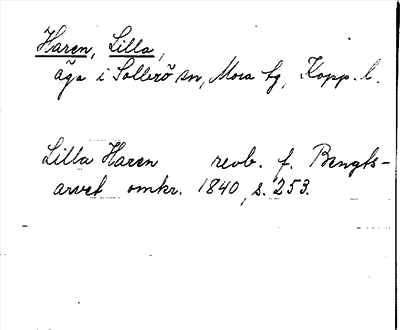 Haren, Lilla,
äga i Sollerö sn, Mora tg, Kopp. l.
Lilla Haren revb. f. Bengts-
arvet omkr. 1840, s. 253.